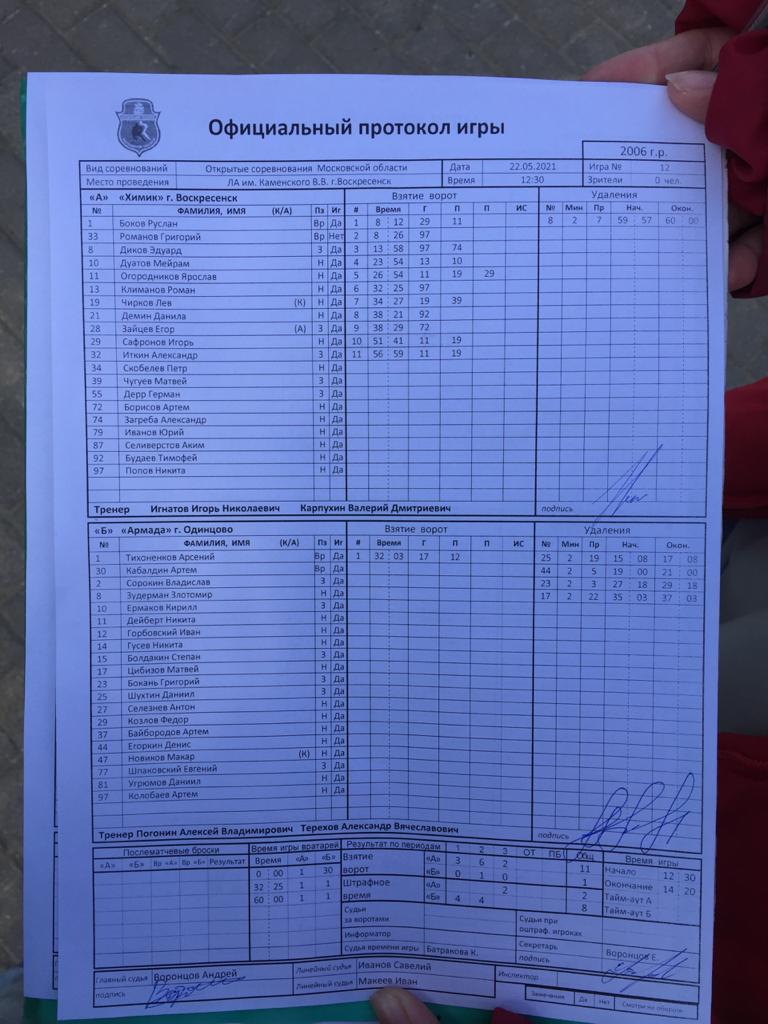 Официальный протокол игры
2006 г.р.
Вид соревнований Открытые соревнования Московской области Дата 22.05.2021 Игра № 12
Место проведения ЛА им. Каменского В.В. г.Воскресенск Время 12:30 Зрители 0 чел.
«А» «Химик» г. Воскресенск Взятие ворот Удаления
№ ФАМИЛИЯ, ИМЯ (К/А) Пз Иг # Время Г П П ИС № Мин Пр Нач. Окон.
1 Боков Руслан Вр Да 1 8 12 29 11 8 2 7 59 57 60 00
33 Романов Григорий Вр Нет 2 8 26 97
8 Диков Эдуард З Да 3 13 58 97 74
10 Дуатов Мейрам Н Да 4 23 54 13 10
11 Огородников Ярослав Н Да 5 26 54 11 19 29
13 Климанов Роман Н Да 6 32 25 97
19 Чирков Лев (К) Н Да 7 34 27 19 39
21 Демин Данила Н Да 8 38 21 92
28 Зайцев Егор (А) З Да 9 38 29 72
29 Сафронов Игорь Н Да 10 51 41 11 19
32 Иткин Александр З Да 11 56 59 11 19
34 Скобелев Петр Н Да
39 Чугуев Матвей З Да
55 Дерр Герман З Да
72 Борисов Артем Н Да
74 Загреба Александр Н Да
79 Иванов Юрий Н Да
87 Селиверстов Аким Н Да
92 Будаев Тимофей Н Да
97 Попов Никита Н Да
Тренер Игнатов Игорь Николаевич Карпухин Валерий Дмитриевич подпись
«Б» «Армада» г. Одинцово Взятие ворот Удаления
№ ФАМИЛИЯ, ИМЯ (К/А) Пз Иг # Время Г П П ИС № Мин Пр Нач. Окон.
1 Тихоненков Арсений Вр Да 1 32 03 17 12 25 2 19 15 08 17 08
30 Кабалдин Артем Вр Да 44 2 5 19 00 21 00
2 Сорокин Владислав З Да 23 2 3 27 18 29 18
8 Зудерман Злотомир Н Да 17 2 22 35 03 37 03
10 Ермаков Кирилл З Да
11 Дейберт Никита Н Да
12 Горбовский Иван Н Да
14 Гусев Никита Н Да
15 Болдакин Степан З Да
17 Цибизов Матвей Н Да
23 Бокань Григорий З Да
25 Шухтин Даниил З Да
27 Селезнев Антон Н Да
29 Козлов Федор Н Да
37 Байбородов Артем Н Да
44 Егоркин Денис Н Да
47 Новиков Макар (К) Н Да
77 Шпаковский Евгений З Да
81 Угрюмов Даниил Н Да
97 Колобаев Артем Н Да
Тренер Погонин Алексей Владимирович Терехов Александр Вячеславович подпись
Послематчевые броски Время игры вратарей Результат по периодам 1 2 3 ОТ ПБ Общ Время игры
«А» «Б» Вр «А» Вр «Б» Результат Время «А» «Б» Взятие ворот «А» 3 6 2 11 Начало 12 30
0 00 1 30 «Б» 0 1 0 1 Окончание 14 20
32 25 1 1 Штрафное время «А» 2 2 Тайм-аут А
60 00 1 1 «Б» 4 4 8 Тайм-аут Б
Судьи за воротами Судьи при оштраф. игроках
Информатор Секретарь Воронцов Е.
Судья времени игры Батракова К. подпись
Главный судья Воронцов Андрей Линейный судья Иванов Савелий Инспектор
подпись Линейный судья Макеев Иван Замечания Да Нет Смотри на обороте